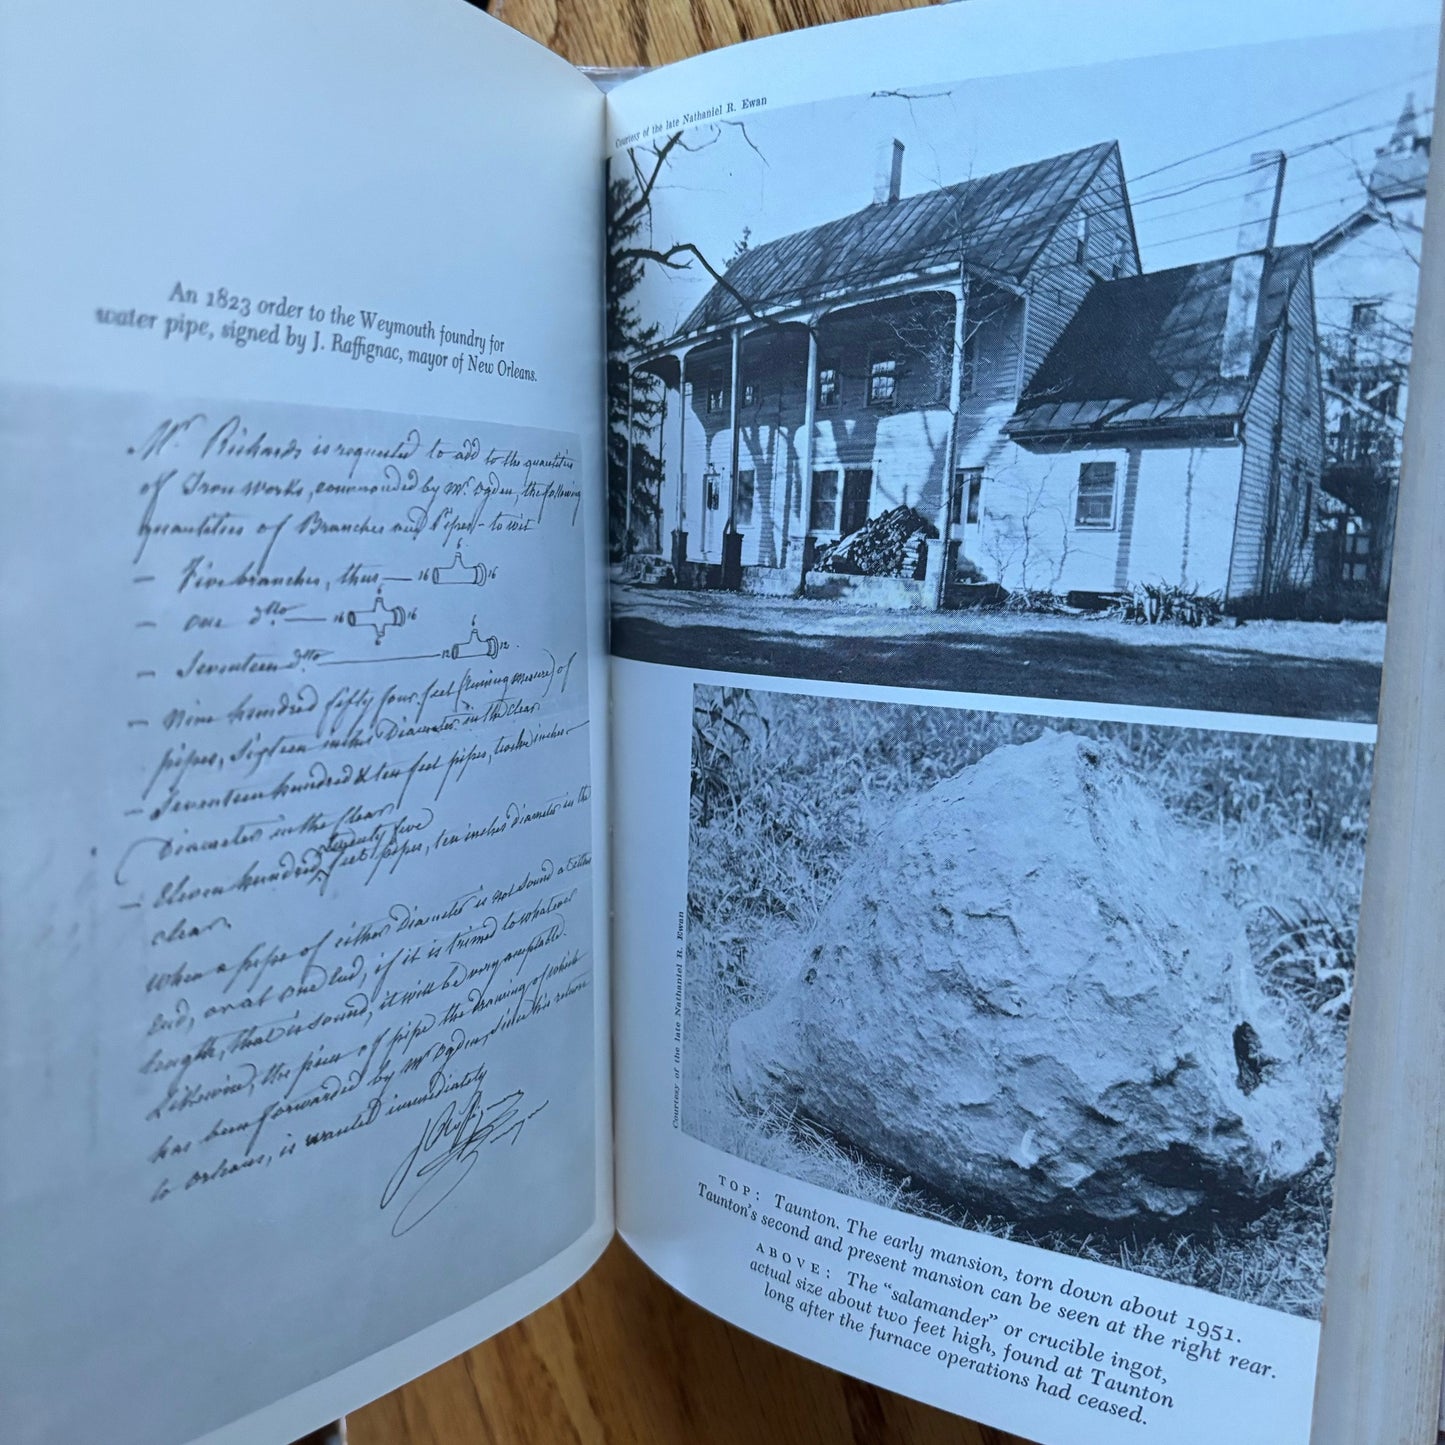 An 1823 order to the Weymouth foundry for
water pipe, signed by J. Raffignac, mayor of New Orleans.
Mr. Richards is requested to add to the quantities
of Iron works, commanded by Mr. Ogden, the following
quantities of Branches and Pipes - to wit
– Five branches, thus — 16 6 16
– one ditto — 16 6 6 16
– Seventeen ditto — 12 6 12.
– Nine hundred fifty four feet (running measure) of
pipes, Sixteen inches Diameter in the clear
– Seventeen hundred & ten feet pipes, twelve inches
Diameter in the clear
twenty five
– Eleven hundred feet pipes, ten inches diameter in the
clear
When a pipe of either Diameter is not sound at either
End, or at one End, if it is trimed to whatever
length, that is sound, it will be very acceptable.
Likewise, the piece of pipe the drawing of which
has been forwarded by Mr Ogden, since his return
to Orleans, is wanted immediately
Courtesy of the late Nathaniel R. Ewan
Courtesy of the late Nathaniel R. Ewan
TOP: Taunton. The early mansion, torn down about 1951.
Taunton's second and present mansion can be seen at the right rear.
ABOVE: The "salamander" or crucible ingot,
actual size about two feet high, found at Taunton
long after the furnace operations had ceased.